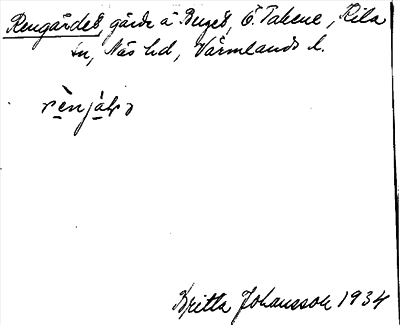 Rengärdet, gärde å Byget, Ö. Takene, Kila
sn, Näs hd, Värmlands l.
Britta Johansson 1934